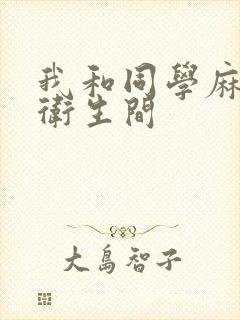 我和同學麻
衛生間
大島智子